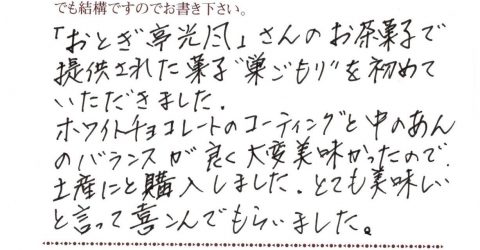 でも結構ですのでお書き下さい。
「おとぎ亭光風」さんのお茶菓子で
提供された菓子"巣ごもり"を初めて
いただきました.
ホワイトチョコレートのコーティングと中のあん
のバランスが良く大変美味かったので.
土産にと購入しました.とても美味しい
と言って喜こんでもらいました。